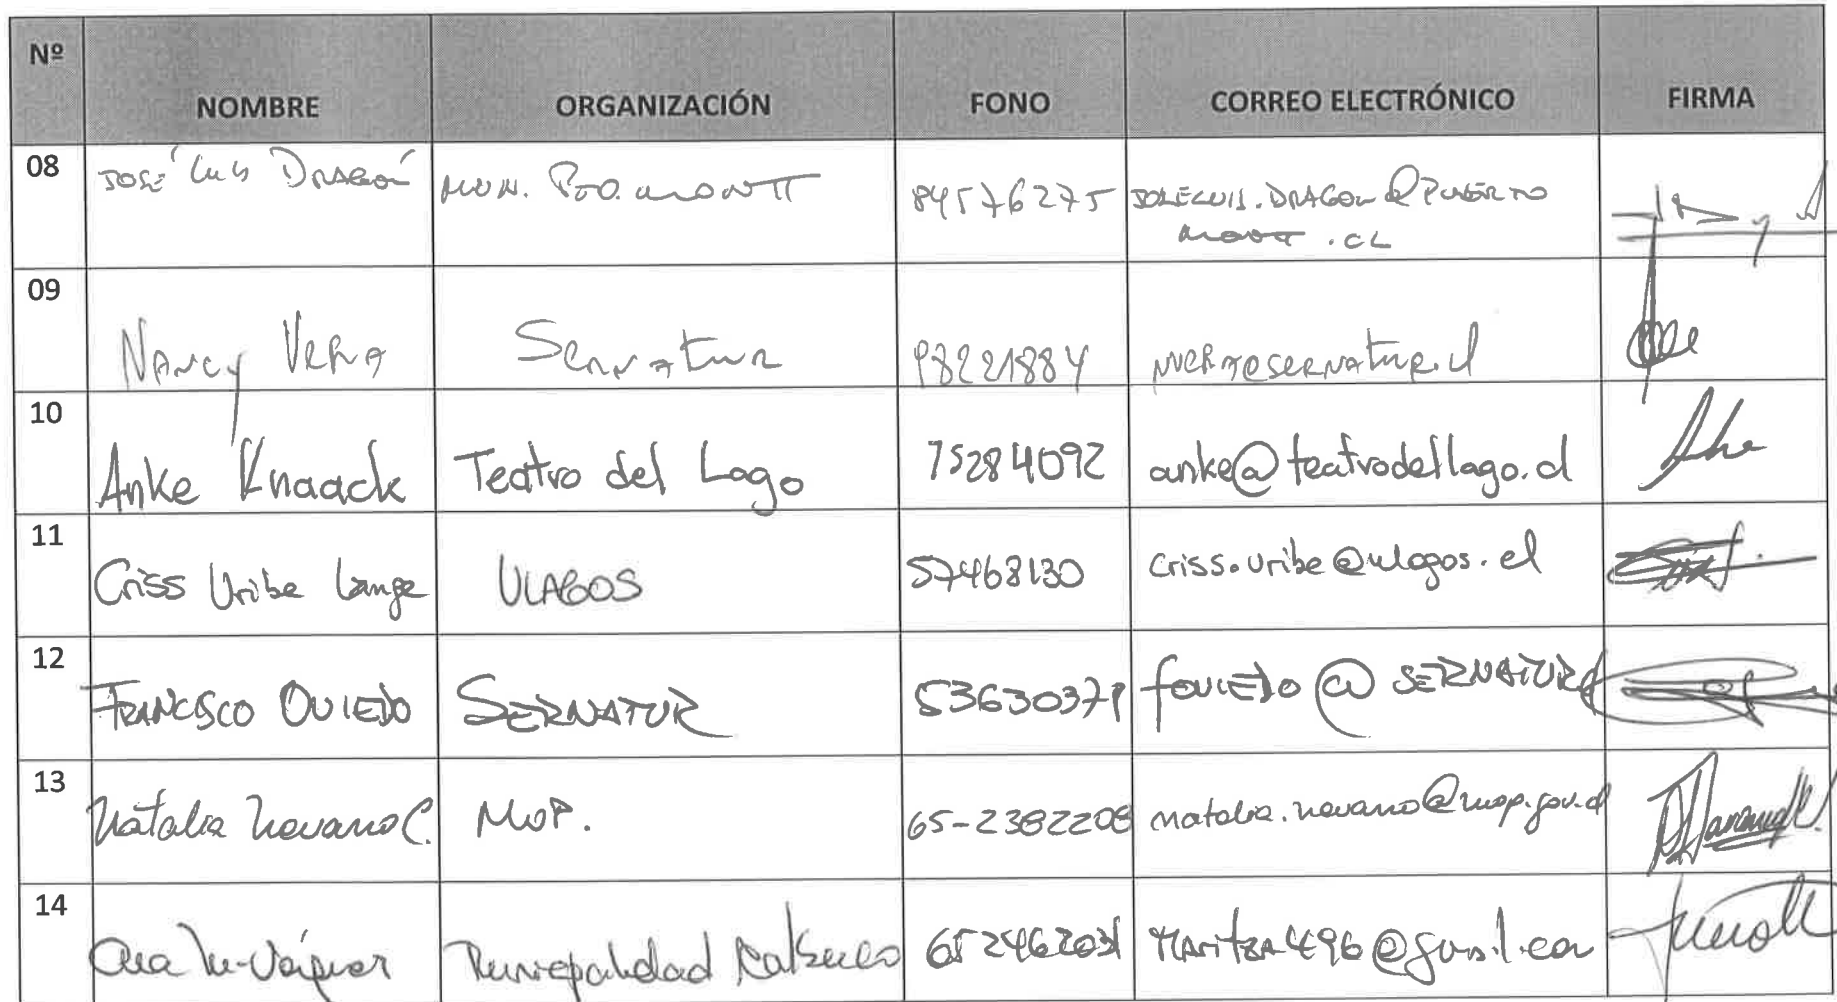 Nº NOMBRE ORGANIZACIÓN FONO CORREO ELECTRÓNICO FIRMA
08 José Luis Dragón MUN. PTO. MONTT 84576275 JOSELUIS.DRAGON@PUERTO
MONTT.CL
09 Nancy Vera Sernatur 98221884 nvera@sernatur.cl
10 Anke Knaack Teatro del Lago 75284092 anke@teatrodellago.cl
11 Criss Uribe Lange ULAGOS 57468130 criss.uribe@ulagos.cl
12 FRANCISCO OVIEDO SERNATUR 53630371 foviedo@SERNATUR.cl
13 Natalia Navarro C. MOP. 65-2382208 natalia.navarro@mop.gov.cl
14 Ana M. Municipalidad Calbuco 652462031 Maritza496@gmail.com